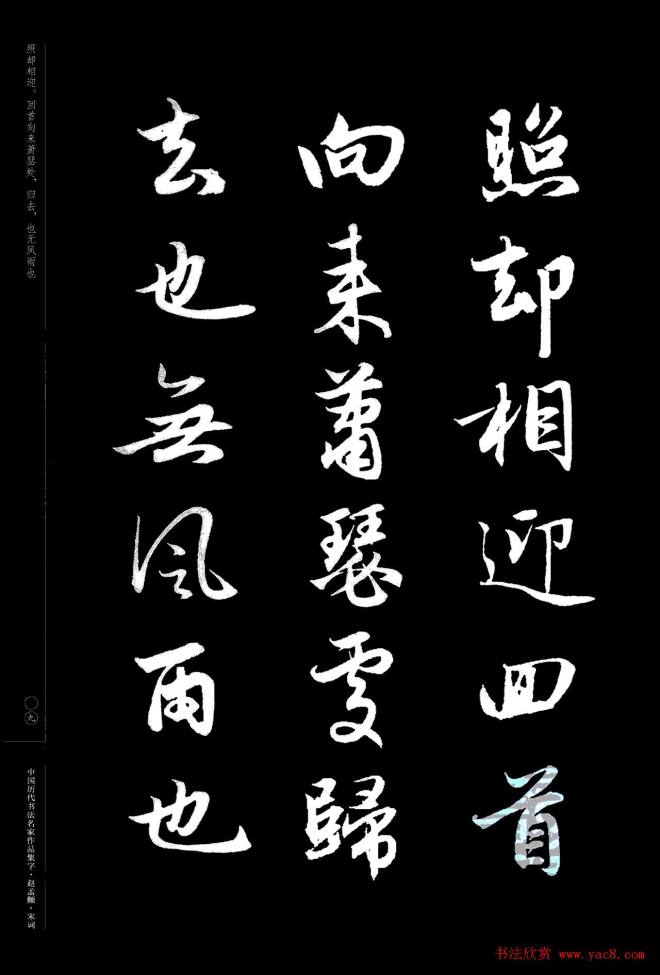 照却相迎回首
向来蕭瑟處歸
去也無風雨也
照却相迎。回首向来萧瑟处，归去，也无风雨也
〇九
中国历代书法名家作品集字·赵孟頫·宋词
书法欣赏 www.yac8.com